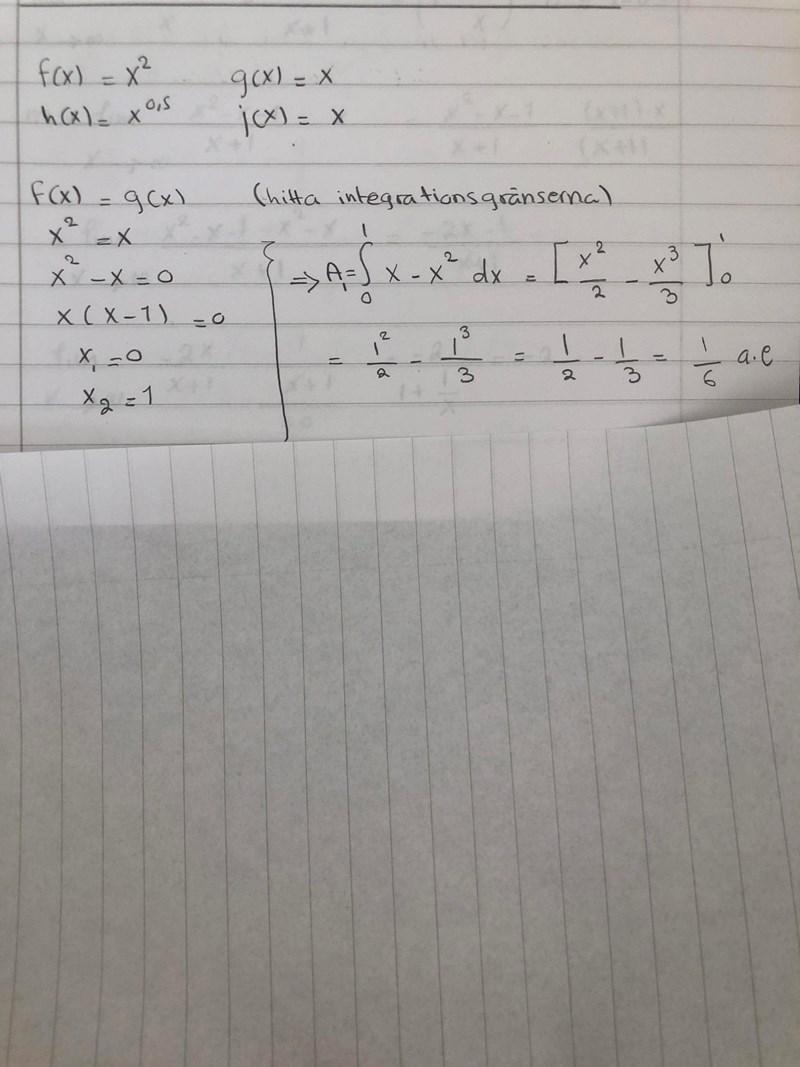 f(x) = x² g(x) = x
h(x) = x^0,5 j(x) = x
f(x) = g(x) (hitta integrationsgränserna)
x² = x
x² - x = 0
x(x-1) = 0
x₁ = 0
x₂ = 1
⇒ A₁ = ∫₀¹ x - x² dx = [x²/2 - x³/3]₀¹
= 1²/2 - 1³/3 = 1/2 - 1/3 = 1/6 a.e